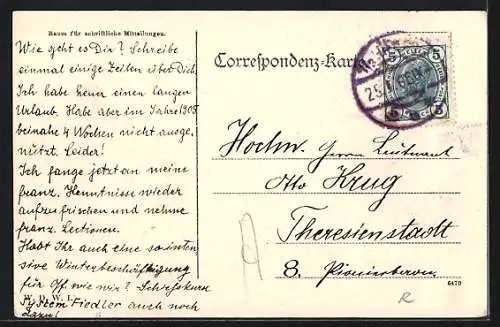 Raum für schriftliche Mitteilungen.
Wie geht es Dir? Schreibe
einmal einige Zeilen über Dich.
Ich habe heuer einen langen
Urlaub. Habe aber im Jahre 1908
beinahe 4 Wochen nicht ausge-
nützt. Leider!
Ich fange jetzt an meine
franz. Kenntnisse wieder
aufzufrischen und nehme
franz. Lectionen.
Habt Ihr auch eine so inten
sive Winterbeschäftigung
für Off. wie wir? Schiefskurs
System Fiedler auch noch
dazu!
Correspondenz-Karte
5 5
5 5
Hochw. Herrn Leutnant
Otto Krug
Theresienstadt
8. Pionierbaon.
6479
R